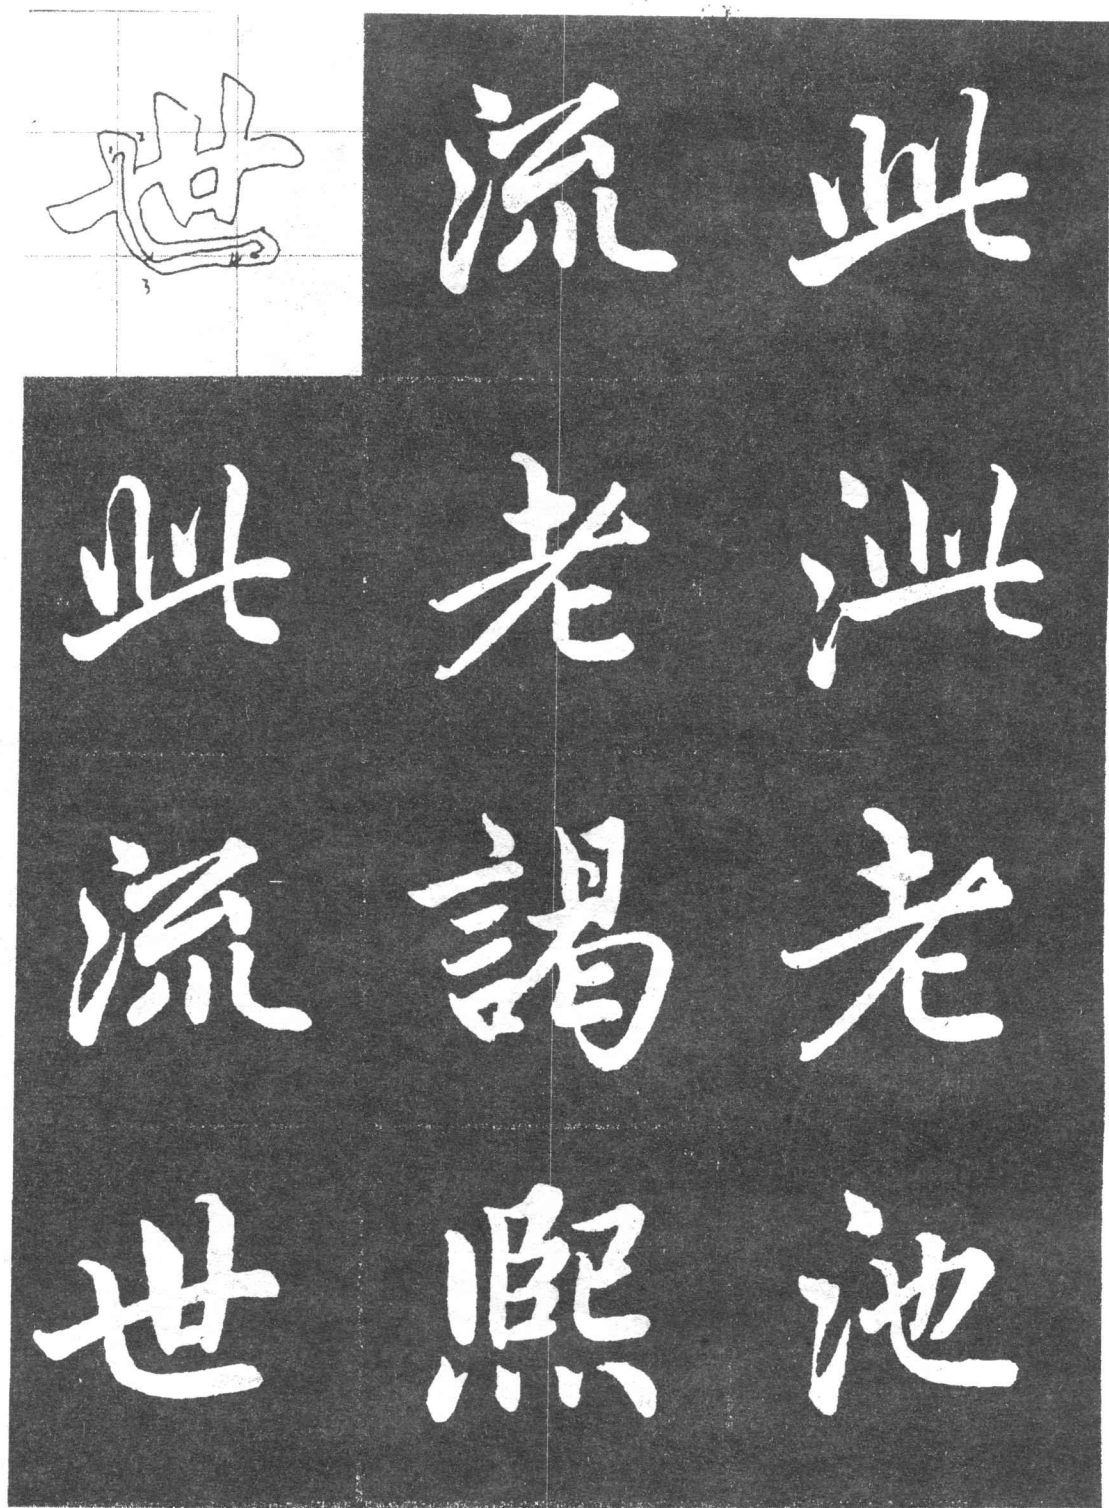 此泚老池
流老謁熙
世此流世